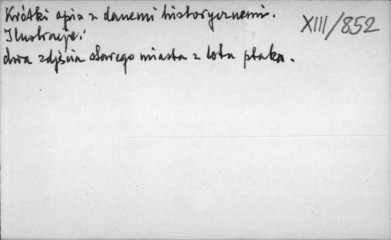 Krótki opis z danemi historycznemi.
XIII/852
Ilustracje:
dwa zdjęcia starego miasta z lotu ptaka.